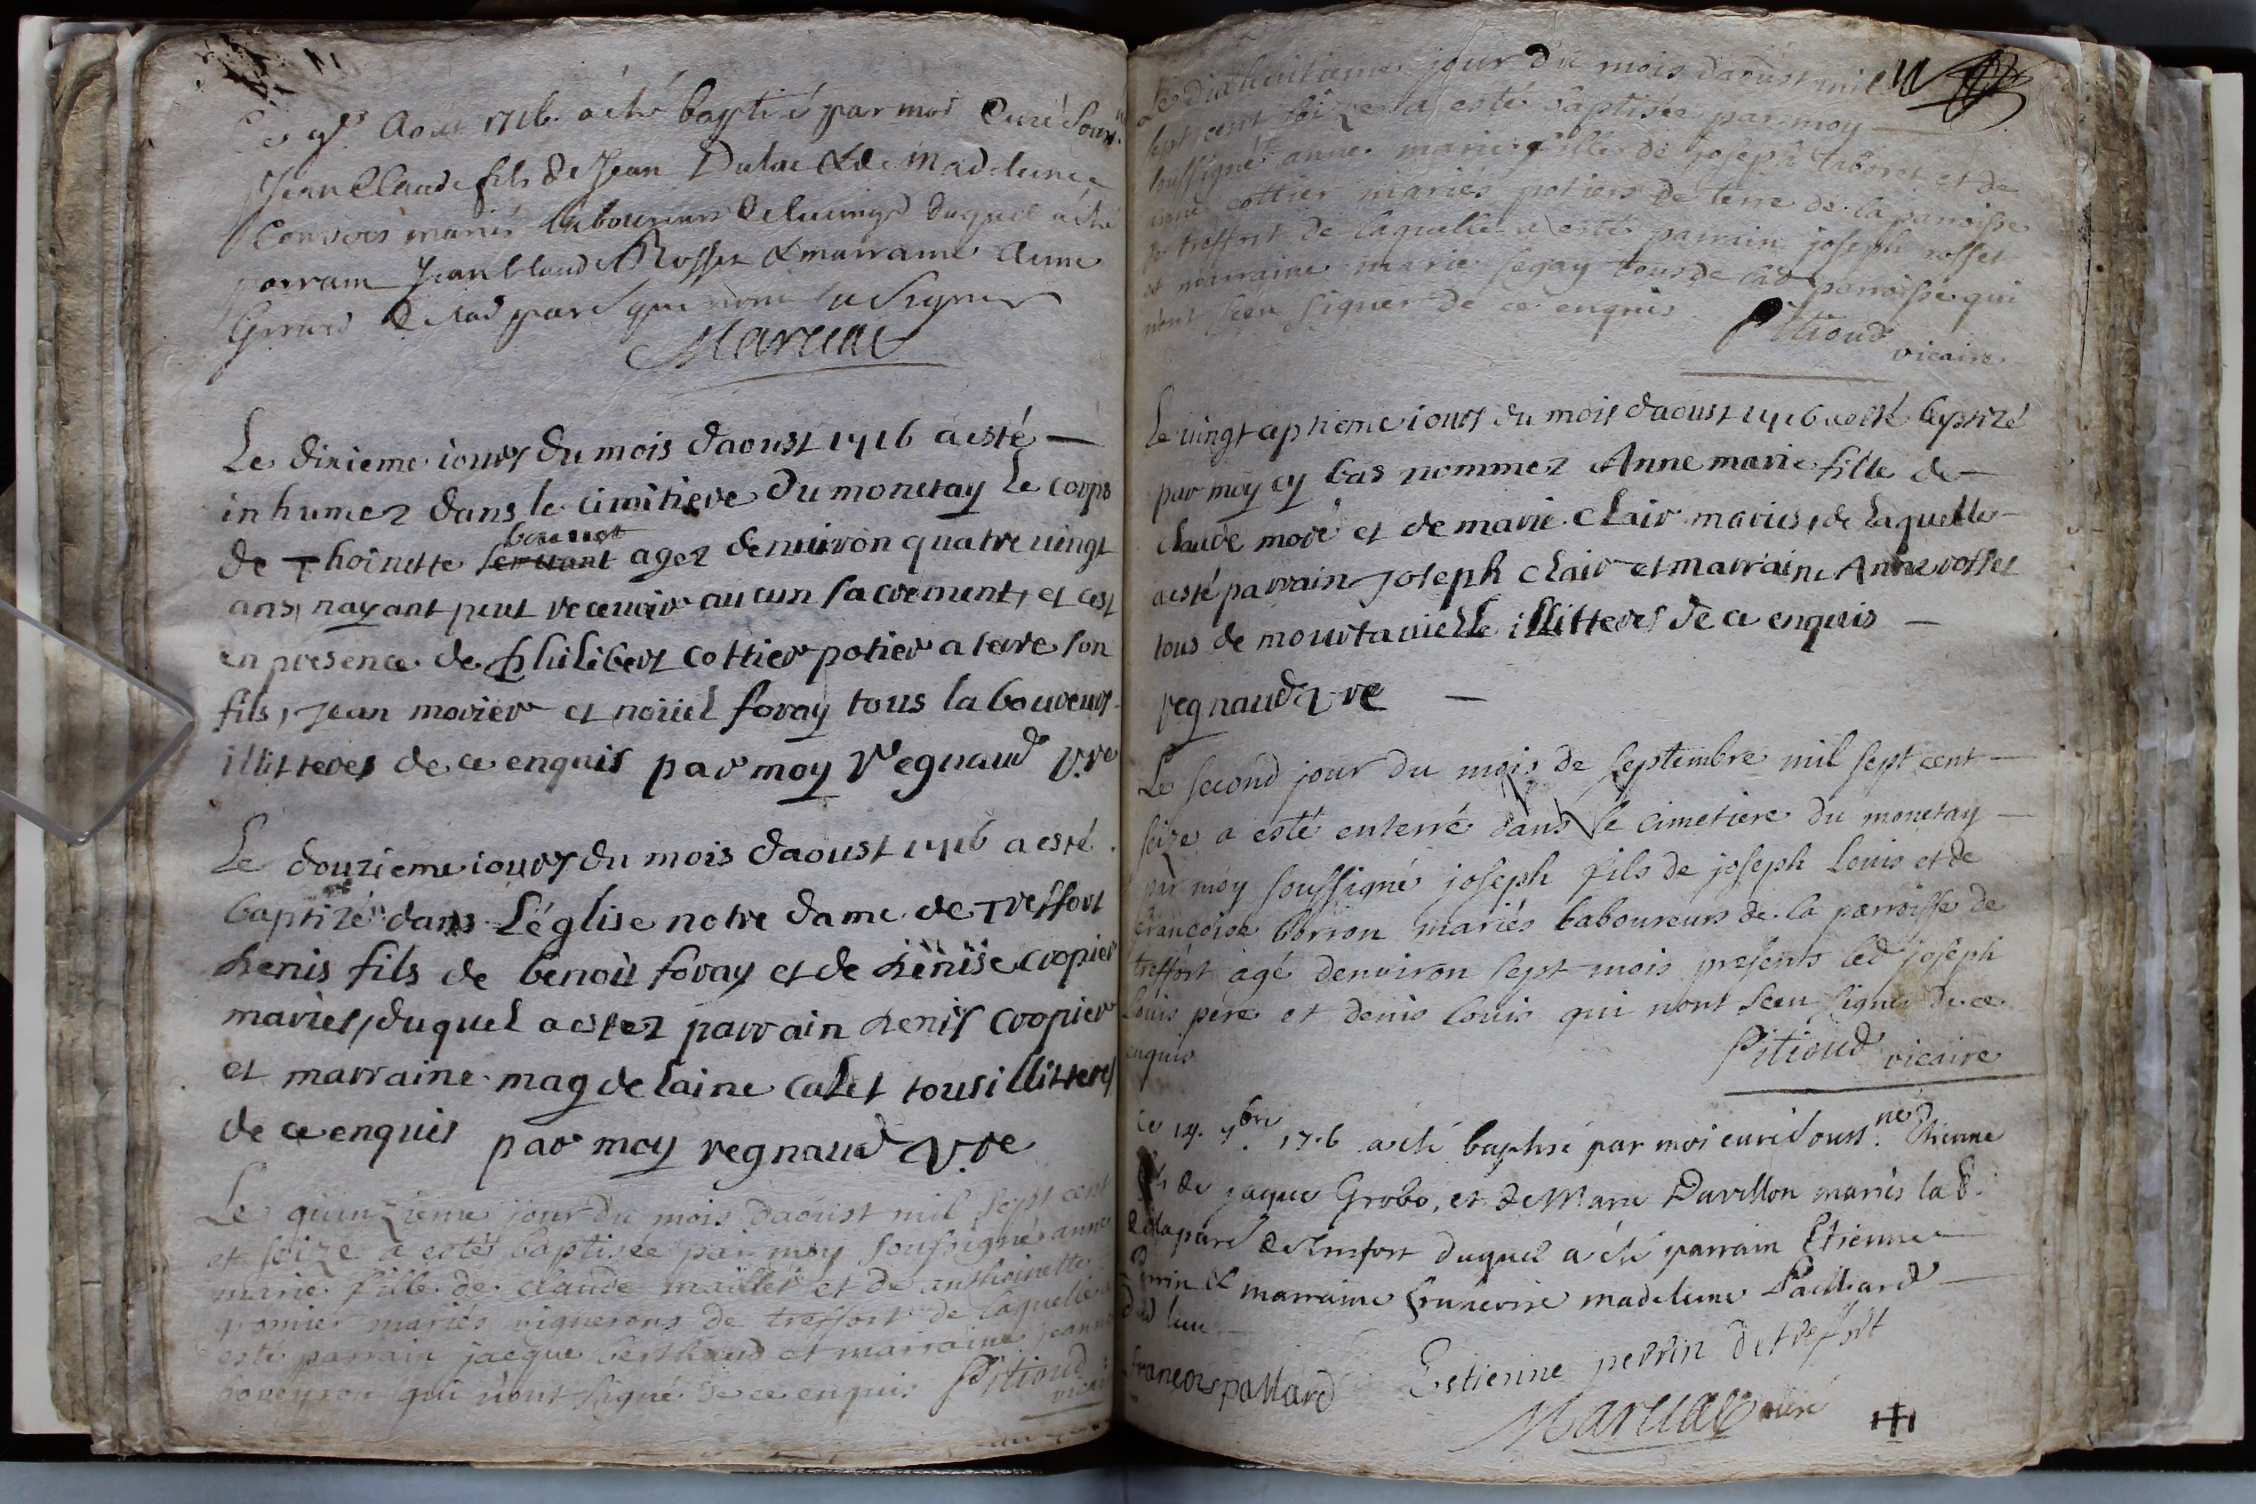 Ce 9e Aoust 1716. a été baptisé par moi Curé Souss.né
Jean Claude fils de Jean Dulac & de Madeleine
Convers mariés laboureurs de duquel a été
parrain Jean Claude Rosset & marraine Anne
Girard de lad parse qui nont su signer
Maruac
Le dixieme iours du mois daoust 1716 a esté —
inhumez dans le cimitiere du monetay Le corps
de Thoinette sermant ageз denuiron quatre uingt
ans, nayant peut receuoir aucun sacrement, et cest
en presence de philibert cottier potier a terre son
fils, Jean morier et noiiel foray tous laboureurs
illitteres de ce enquis par moy Regnaud V.re
Le douzieme iours du mois daoust 1716 a esté
baptizé dans L'église notre dame de Treffort
denis fils de benoit foray et de denise cropier
mariés, duquel a estez parrain denis cropier
et marraine magdelaine calet tous illitteres
de ce enquis par moy regnaud V.re
Le quinzieme jour du mois daoust mil sept cent
et seize a esté baptisée par moy soussigné anne
marie fille de claude maillet et de anthoinette
gromier mariés vignerons de treffort de laquelle a
esté parrain jacque berthaud et marraine jeanne
boveyron qui n'ont signé de ce enquis Pitioud
vicaire
Le dixhuitieme jour du mois daoust mil
sept cent seize a esté baptisée par moy —
soussigné anne marie fille de joseph taboret et de
cottier mariés potiers de terre de la parroisse
de treffort de laquelle a esté parrain joseph rosset
et marraine marie segay tous de lad parroisse qui
n'ont sceu signer de ce enquis
Pitioud
vicaire
Le uingt aptieme iours du mois daoust 1716 a esté baptizé
par moy cy bas nommez Anne marie fille de —
claude moré et de marie clair mariés, de laquelle —
a esté parrain Joseph clair et marraine Anne rosset
tous de mourtauielle illitteres de ce enquis —
regnaud V.re —
Le second jour du mois de septembre mil sept cent —
seize a esté enterré dans le cimetiere du monetay —
par moy soussigné joseph fils de joseph louis et de
françoise borron mariés laboureurs de la parroisse de
treffort agé denuiron sept mois presents led joseph
louis pere et denis louis qui nont sceu signer de ce
enquis
Pitioud vicaire
Ce 14. 7bre 1716 a été baptisé par moi curé Souss.né Etienne
fils de jaque Grobo, et de Marie Davillon mariés lab.
de la parse de treffort duquel a été parrain Etienne
Perrin & marraine madeleine Paillard —
françois pallard Estienne perrin de treffort
Maruac curé